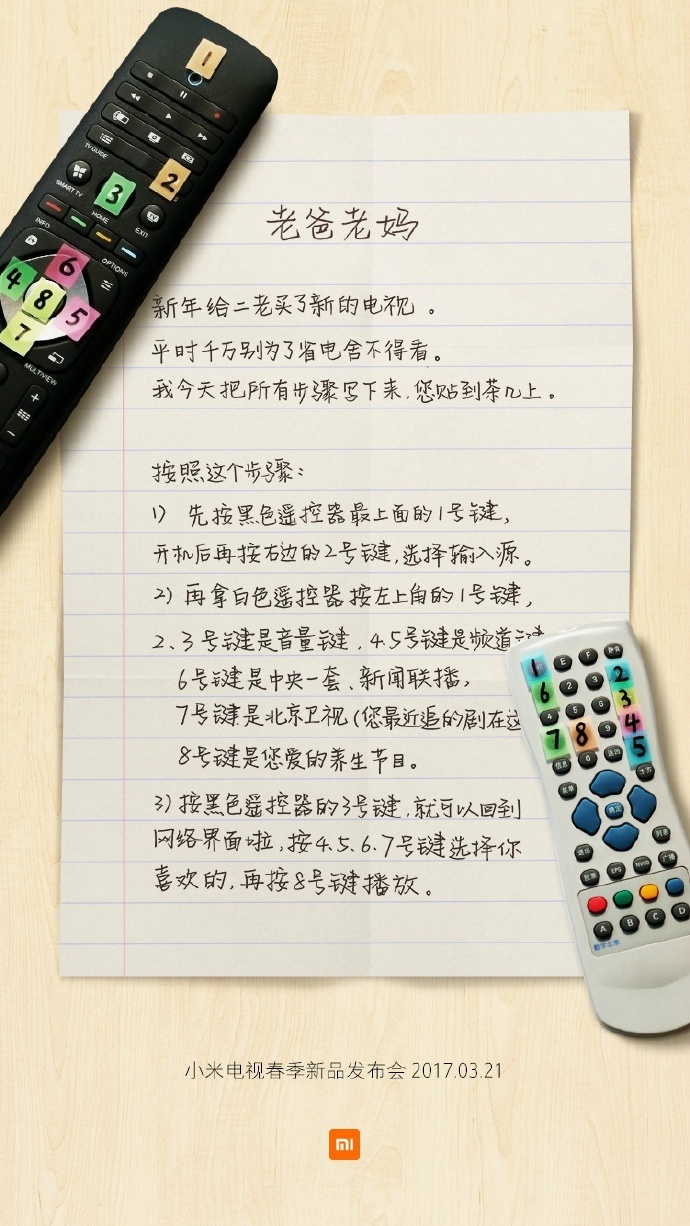 老爸老妈
新年给二老买了新的电视。
平时千万别为了省电舍不得看。
我今天把所有步骤写下来,您贴到茶几上。
按照这个步骤:
1) 先按黑色遥控器最上面的1号键,
开机后再按右边的2号键,选择输入源。
2) 再拿白色遥控器按左上角的1号键,
2、3号键是音量键,4.5号键是频道键
6号键是中央一套、新闻联播,
7号键是北京卫视(您最近追的剧在这
8号键是您爱的养生节目。
3) 按黑色遥控器的3号键,就可以回到
网络界面啦,按4.5.6.7号键选择你
喜欢的,再按8号键播放。
1
TV GUIDE
SMART TV
3
2
HOME
INFO
EXIT
OPTIONS
6
4
8
5
7
MULTIVIEW
+
-
1
E
F
静音
2
6
2
3
3
4
5
6
4
7
8
9
5
信息
0
返回
主页
菜单
确定
退出
列表
股票
EPG
NVOD
广播
A
B
C
D
数字北京
小米电视春季新品发布会 2017.03.21
mi